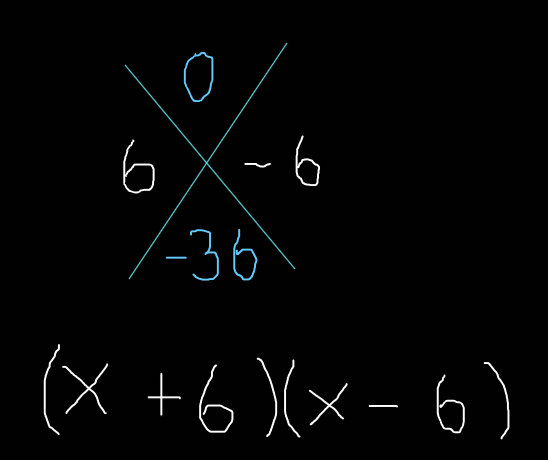 0
6 -6
-36
(x +6)(x - 6)